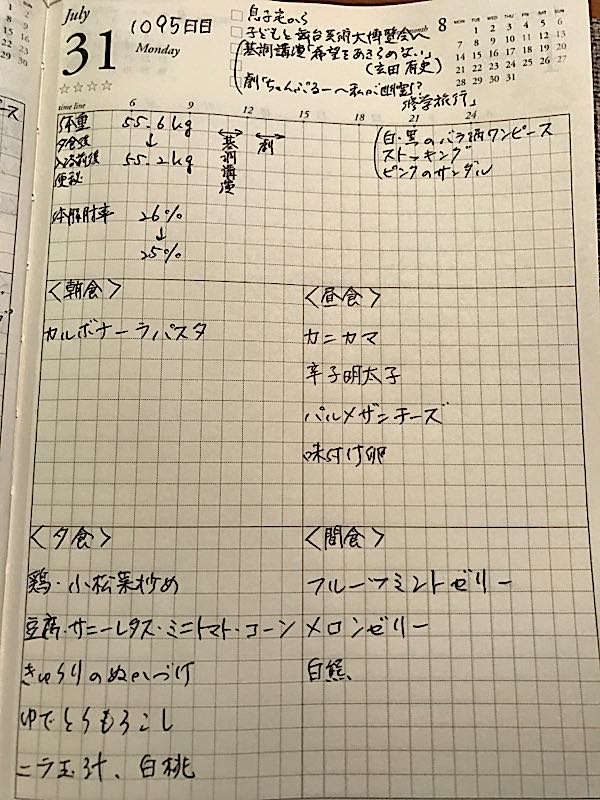 July
31
Monday
☆☆☆☆
1095日目
息子宅から
子どもと舞台芸術大博覧会へ
基調講演「希望をあきらめない」
(玄田有史)
劇「ちゃんぷるー〜私が幽霊!?
修学旅行」
month 8
MON TUE WED THU FRI SAT SUN
1 2 3 4 5 6
7 8 9 10 11 12 13
14 15 16 17 18 19 20
21 22 23 24 25 26 27
28 29 30 31
time line 6 9 12 15 18 21 24
体重 55.6kg
夕食後 ↓
入浴前後 55.2kg
便秘
体脂肪率 26%
↓
25%
基調講演
劇
白・黒のバラ柄ワンピース
ストッキング
ピンクのサンダル
<朝食>
カルボナーラパスタ
<昼食>
カニカマ
辛子明太子
パルメザンチーズ
味付け卵
<夕食>
鶏・小松菜炒め
豆腐・サニーレタス・ミニトマト・コーン
きゅうりのぬかづけ
ゆでとうもろこし
ニラ玉汁、白桃
<間食>
フルーツミントゼリー
メロンゼリー
白熊、